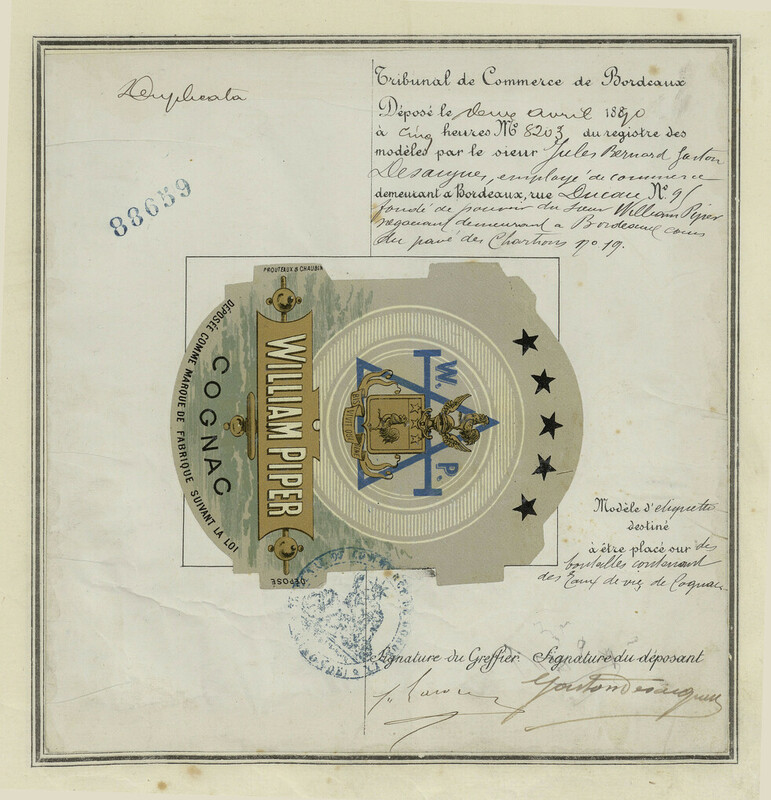 Duplicata
88659
Tribunal de Commerce de Bordeaux
Déposé le deux avril 1890
à cinq heures No 8203 du registre des
modèles par le sieur Jules Bernard Gaston
Desaigues, employé de commerce
demeurant à Bordeaux, rue Ducau No 91
fondé de pouvoir du sieur William Piper
négociant demeurant à Bordeaux cours
du pavé des Chartrons no 19.
PROUTEAUX & CHAUBIN
DÉPOSÉE COMME MARQUE DE FABRIQUE SUIVANT LA LOI
COGNAC
WILLIAM PIPER
W. P.
DÉPOSÉ
Modèle d'etiquette
destiné
à être placé sur des
bouteilles contenant
des Eaux de vie de Cognac
Signature du Greffier. Signature du déposant
Gaston Desaigues